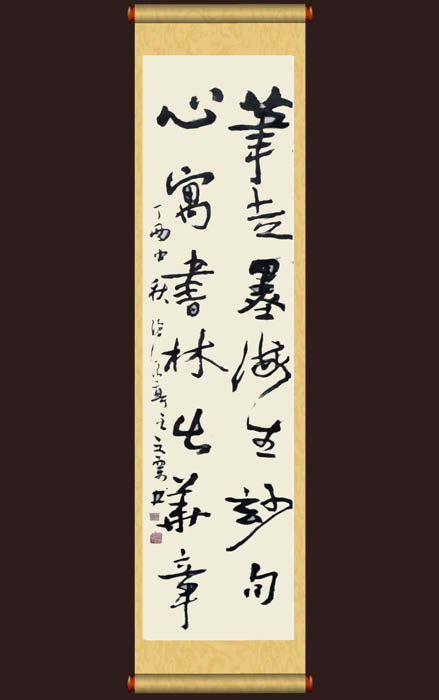 筆走墨海生玅句
心寓書林出華章
丁酉中秋
主文云書